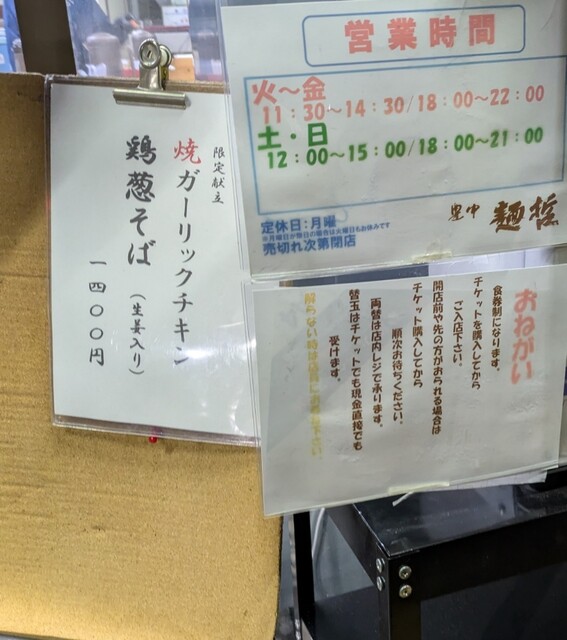 限定献立
焼ガーリックチキン
鶏葱そば(生姜入り)
一四〇〇円
営業時間
火～金
11:30～14:30/18:00～22:00
土・日
12:00～15:00/18:00～21:00
定休日:月曜
※月曜日が祭日の場合は火曜日もお休みです
売切れ次第閉店
豊中 麺哲
おねがい
食券制になります。
チケットを購入してから
ご入店下さい。
開店前や先の方がおられる場合は
チケット購入してから
順次お待ちください。
両替は店内レジで承ります。
替玉はチケットでも現金直接でも
受けます。